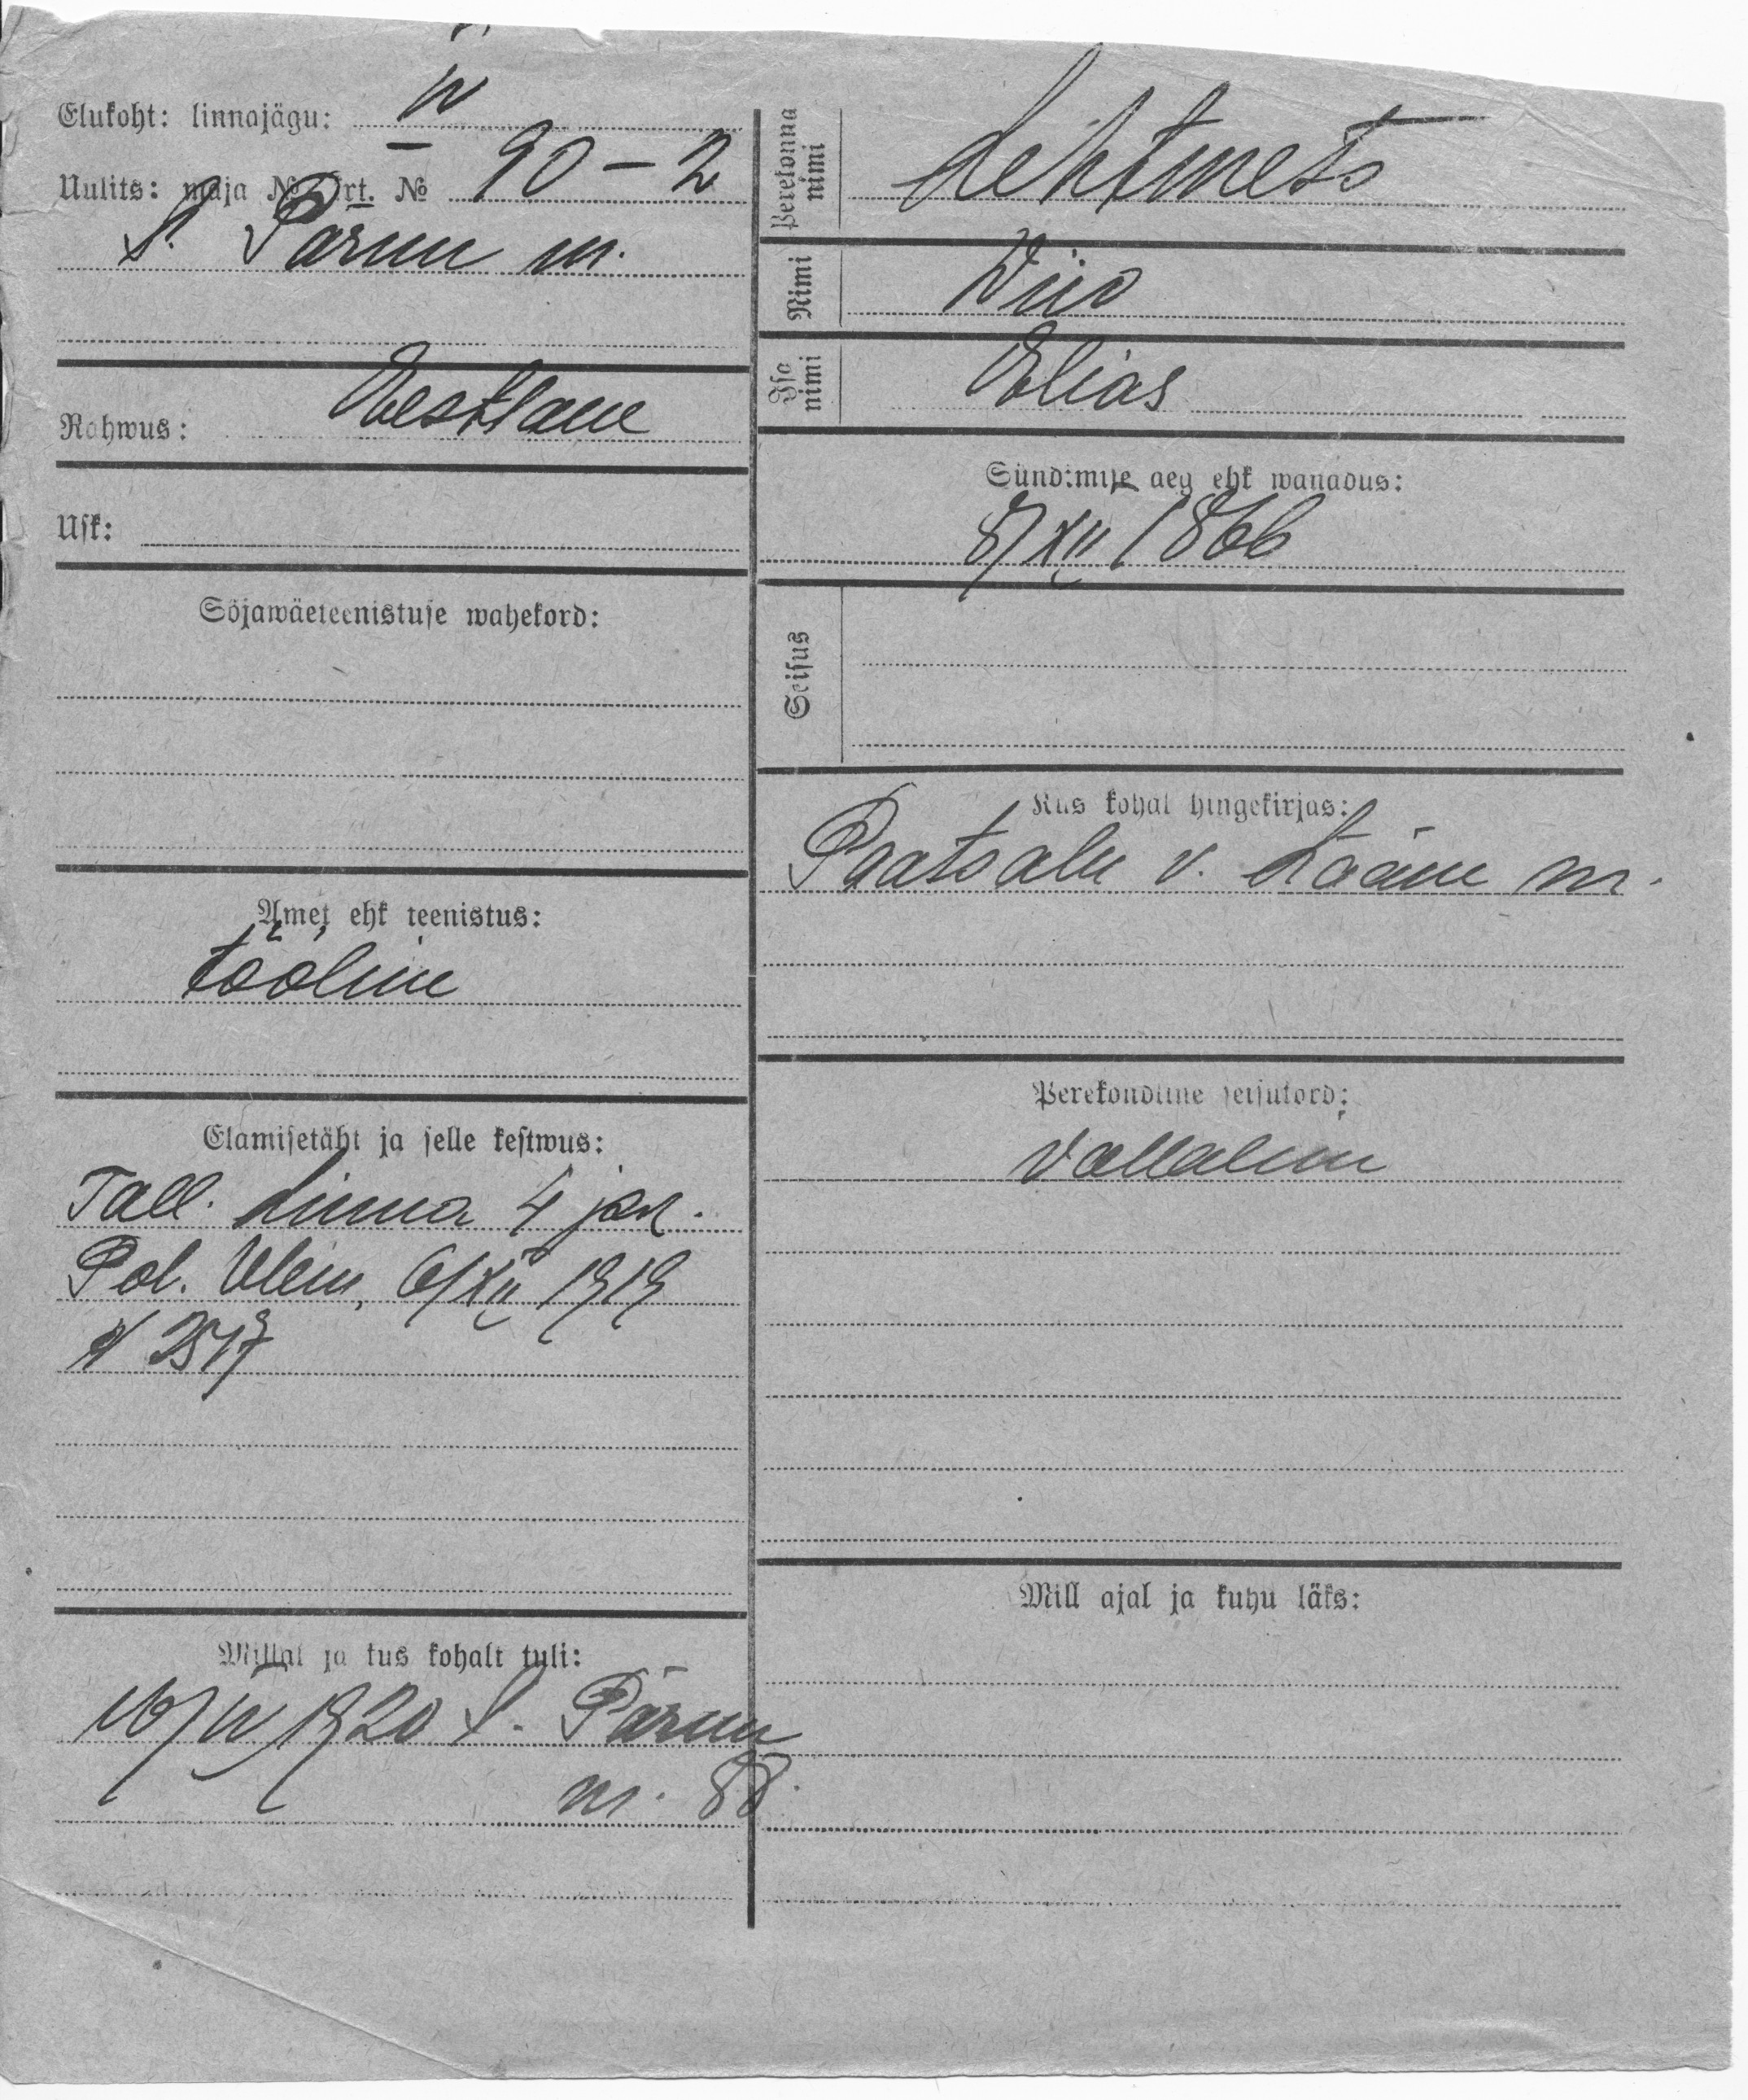 Elukoht: linnajägu: IV
Uulits: maja № krt. № 90-2
S. Pärnu m.
Rahwus: Eestlane
Usk:
Söjawäeteenistuse wahekord:
Amet ehk teenistus:
tööline
Elamisetäht ja selle kestwus:
Tall. Linna 4 jsk.
Pol. Ülem, 6/XII 1919
№ 2547
Millal ja kus kohalt tuli:
16/IV 1920 S. Pärnu
m. 88.
Perekonna nimi
Lehtmets
Nimi
Wiio
Isa nimi
Elias
Sündimise aeg ehk wanadus:
8/XII 1866
Seisus
Kus kohal hingekirjas:
Paatsalu v. Lääne m.
Perekondline seisukord:
Vallaline
Mill ajal ja kuhu läks: